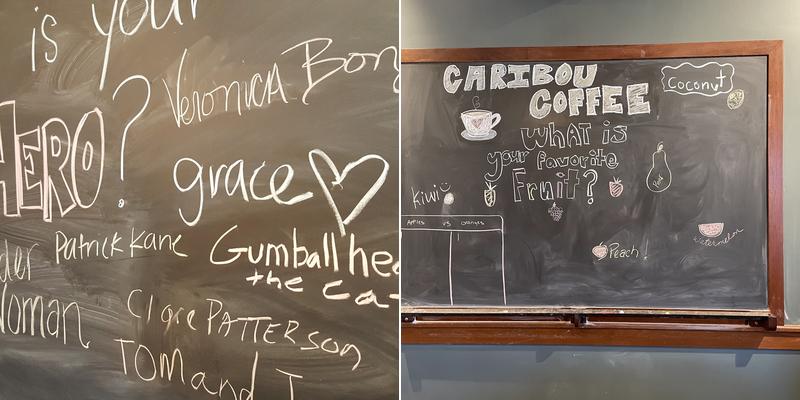 is your
HERO?
Veronica Bon
grace
Patrick Kane
Gumball he
the ca
der
Woman
Clare PATTERSON
TOM and J
CARIBOU
COFFEE
Coconut
What is
your favorite
Fruit?
Kiwi
Apples vs oranges
Peach!
watermelon